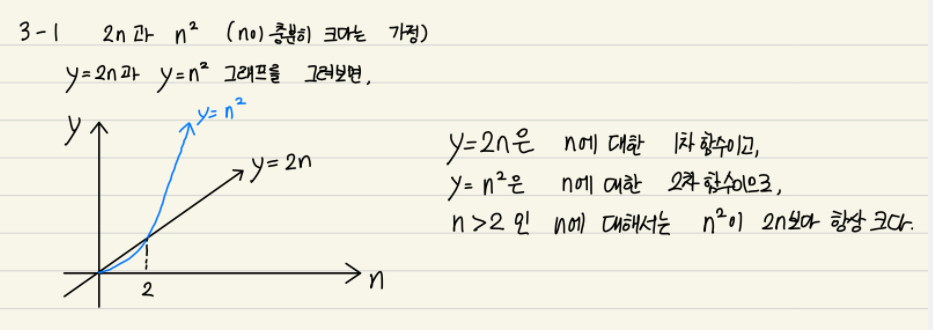 3-1 2n과 n² (n이 충분히 크다는 가정)
y=2n과 y=n² 그래프을 그려보면,
y
y=n²
y=2n
2
n
y=2n은 n에 대한 1차 함수이고,
y=n²은 n에 대한 2차 함수이므로,
n>2 인 n에 대해서는 n²이 2n보다 항상 크다.